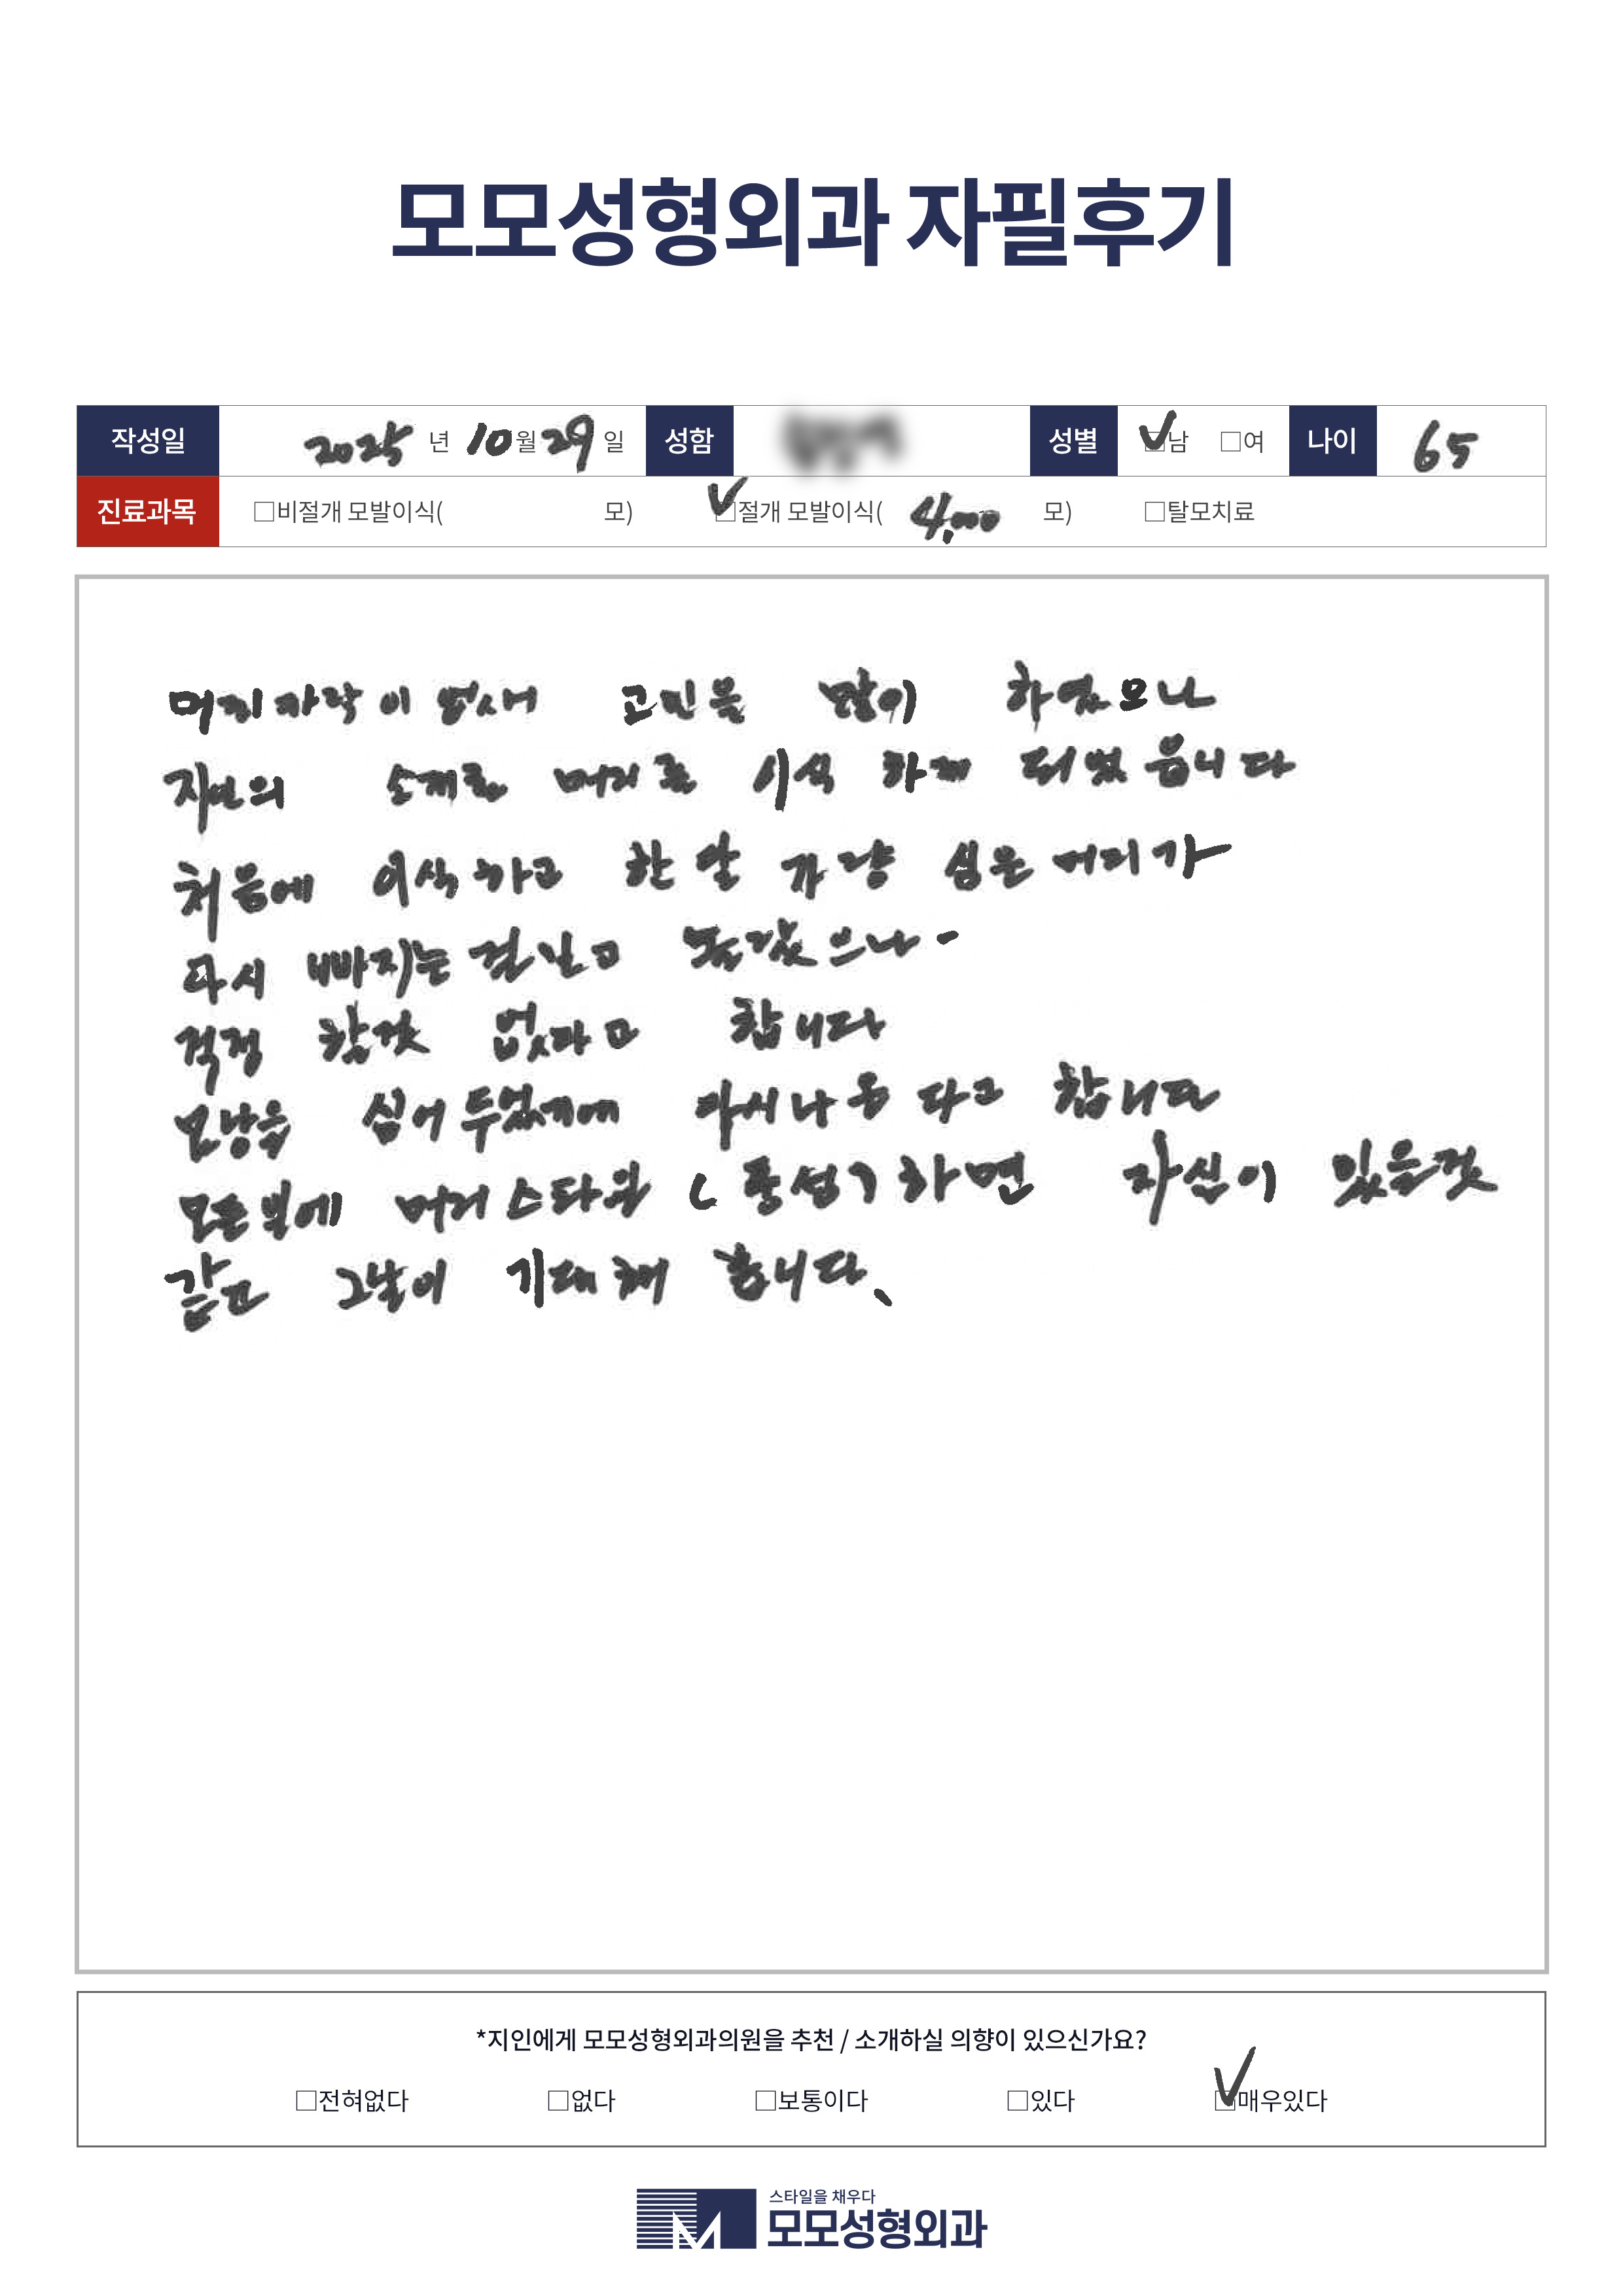 모모성형외과 자필후기
작성일 2025 년 10 월 29 일 성함 성별 ☑남 □여 나이 65
진료과목 □비절개 모발이식( 모) ☑절개 모발이식( 4,000 모) □탈모치료
머리카락이 없새 고민을 많이 하였으나
지인의 소개로 머리를 이식 하게 되었읍니다
처음에 이식하고 한달 가량 심은머리가
다시 빠지는 놀랐으나
걱정 할것 없다고 합니다
모낭을 심어 다시나온다고 합니다
머리스타일 풍성 하면 자신이 있을것
같고 그날이 기대해 봅니다.
*지인에게 모모성형외과의원을 추천 / 소개하실 의향이 있으신가요?
□전혀없다 □없다 □보통이다 □있다 ☑매우있다
스타일을 채우다
모모성형외과